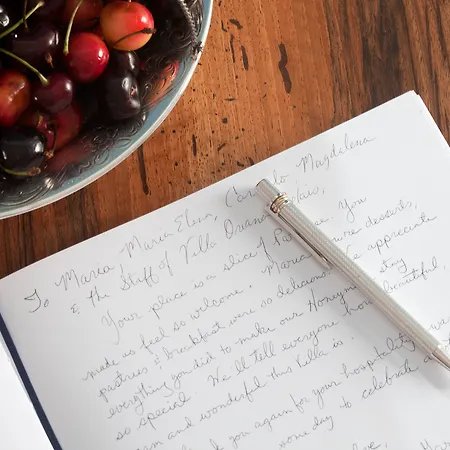 To Maria, Maria Elena, Magdalena
& the Staff of Villa
Your place is a slice of You
made us feel so welcome. Maria desserts,
pastries & breakfast were so delicious. We appreciate
everything you did to make our Honeymoon stay
so special. We'll tell everyone how beautiful,
warm and wonderful this Villa is.
you again for your hospitality.
some day to celebrate